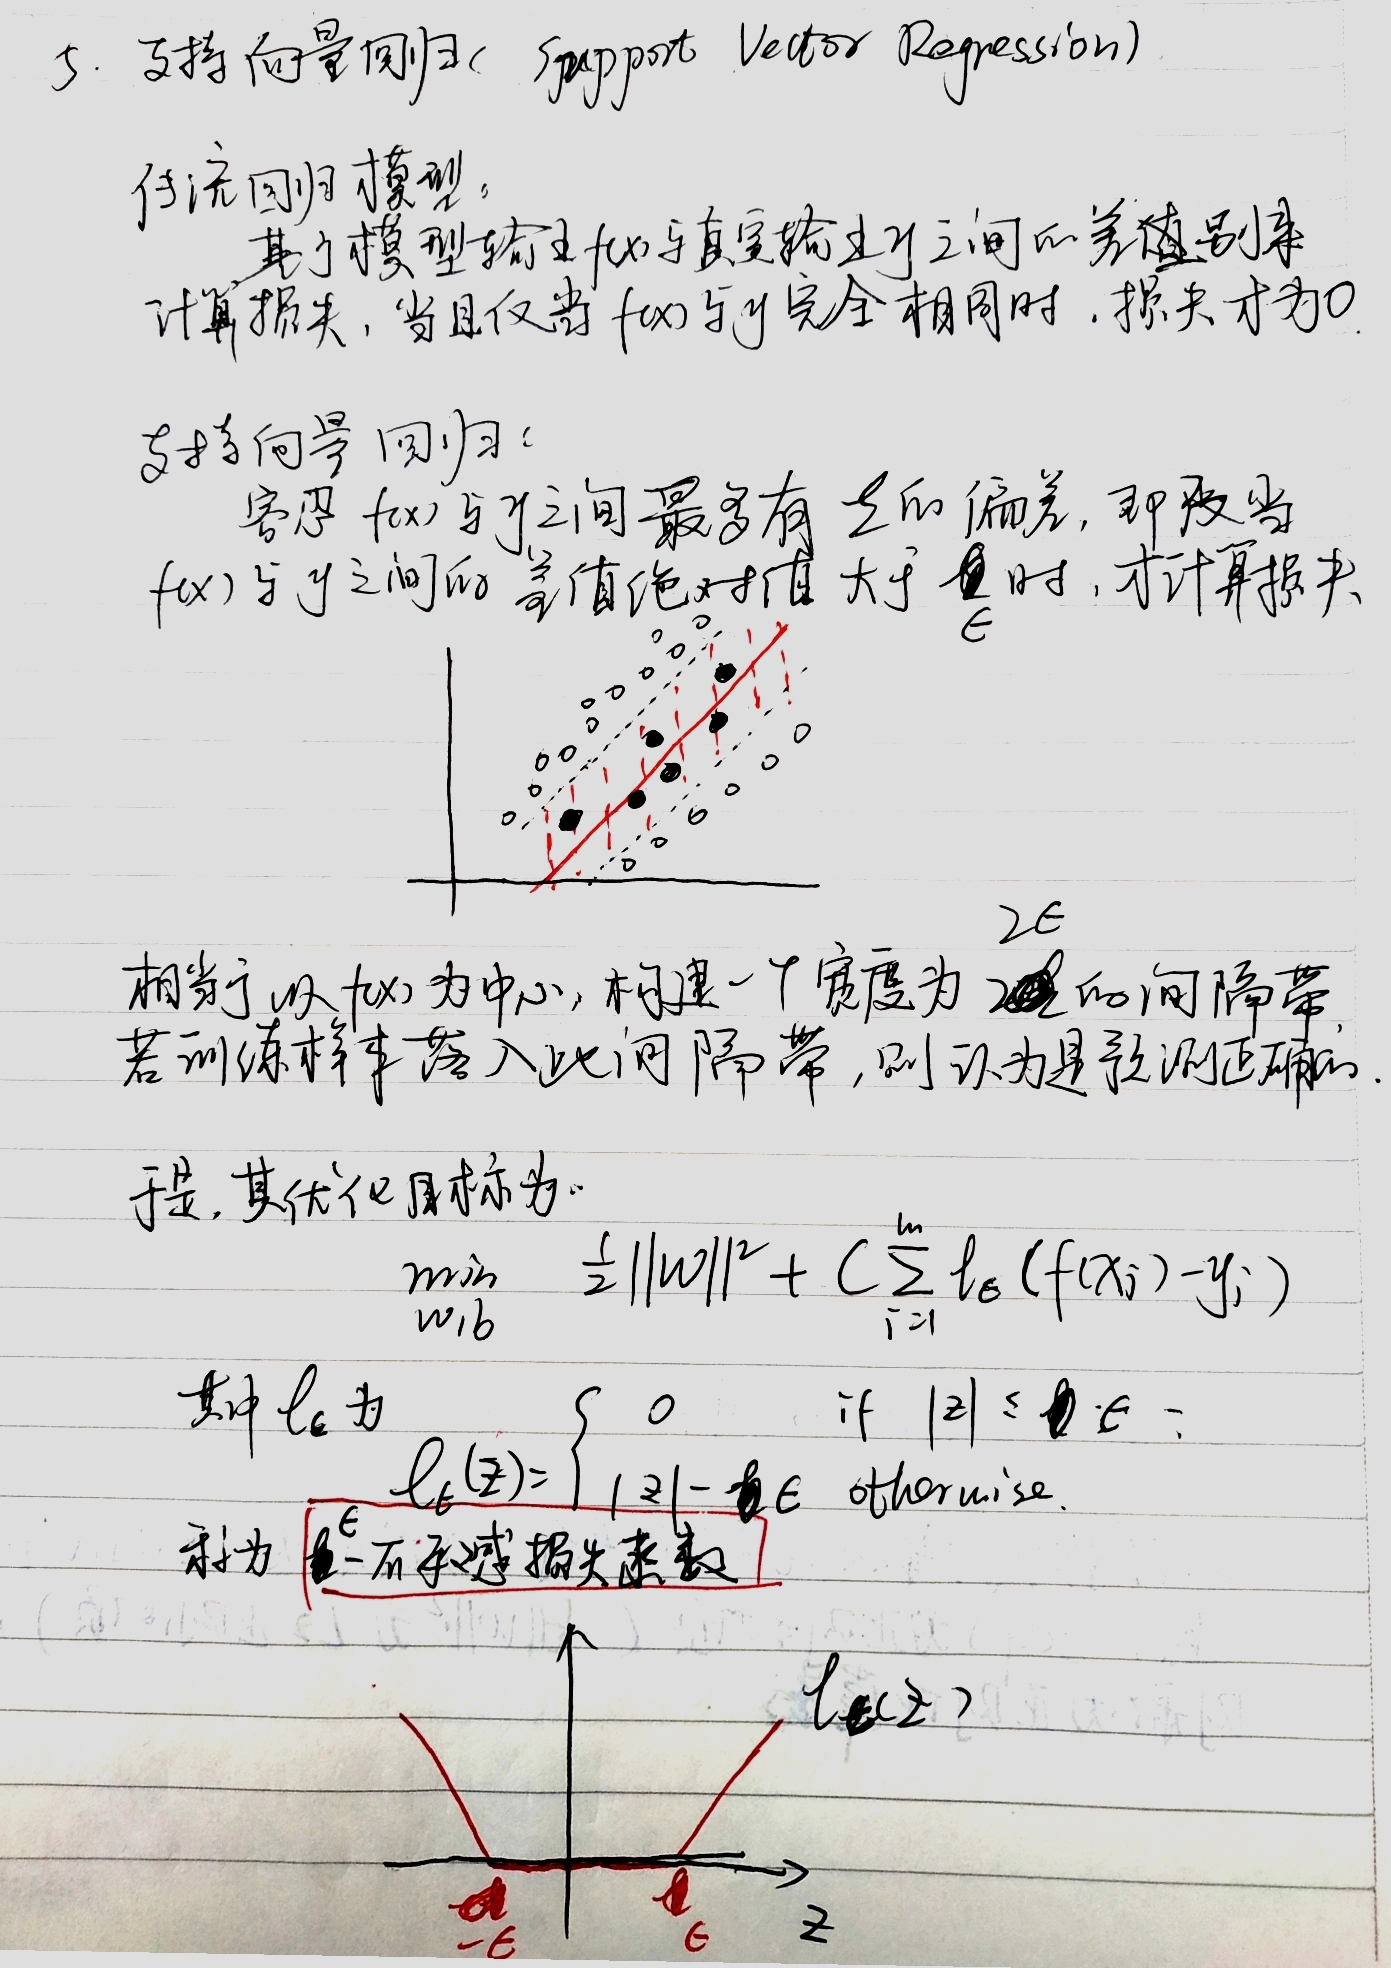 5. 支持向量回归( Support Vector Regression)
传统回归模型:
基于模型输出f(x)与真实输出y之间的差别来
计算损失,当且仅当f(x)与y完全相同时,损失才为0.
支持向量回归:
容忍f(x)与y之间最多有ϵ的偏差,即仅当
f(x)与y之间的差值绝对值大于ϵ时,才计算损失
相当于以f(x)为中心,构建一个宽度为2ϵ的间隔带,
若训练样本落入此间隔带,则认为是预测正确的.
于是,其优化目标为:
min w,b ½||w||² + C Σ i=1 m ℓϵ(f(xi)-yi)
其中ℓϵ为
ℓϵ(z)= { 0 if |z| ≤ ϵ ;
|z|-ϵ otherwise.
称为 ϵ-不敏感损失函数
ℓϵ(z)
-ϵ ϵ z